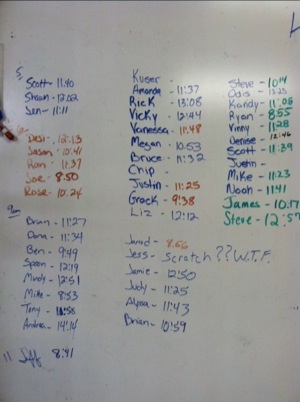 Scott - 11:40
Shawn - 12:02
Jen - 11:11
Desi - 12:13
Jason - 10:41
Ron - 11:37
Joe - 8:50
Rose - 10:24
9am
Brian - 11:27
Dana - 11:34
Ben - 9:49
Spoon - 12:19
Mindy - 12:51
Mike - 8:53
Tony - 11:58
Andrea - 14:14
11 Jeff 8:41
Kuser -
Amanda - 11:37
Rick - 13:08
Vicky - 12:44
Vanessa - 11:48
Megan - 10:53
Bruce - 11:32
Chip -
Justin - 11:25
Grack - 9:38
Liz - 12:12
Jarrod - 8:56
Jess - Scratch?? W.T.F.
Jamie - 12:50
Judy - 11:25
Alyssa - 11:43
Brian - 10:59
Steve - 10:14
Odis - 13:25
Kandy - 11:05
Ryan - 8:55
Vinny - 11:28
Denise - 12:46
Scott - 11:39
Justin -
Mike - 11:23
Noah - 11:41
James - 10:17
Steve - 12:57